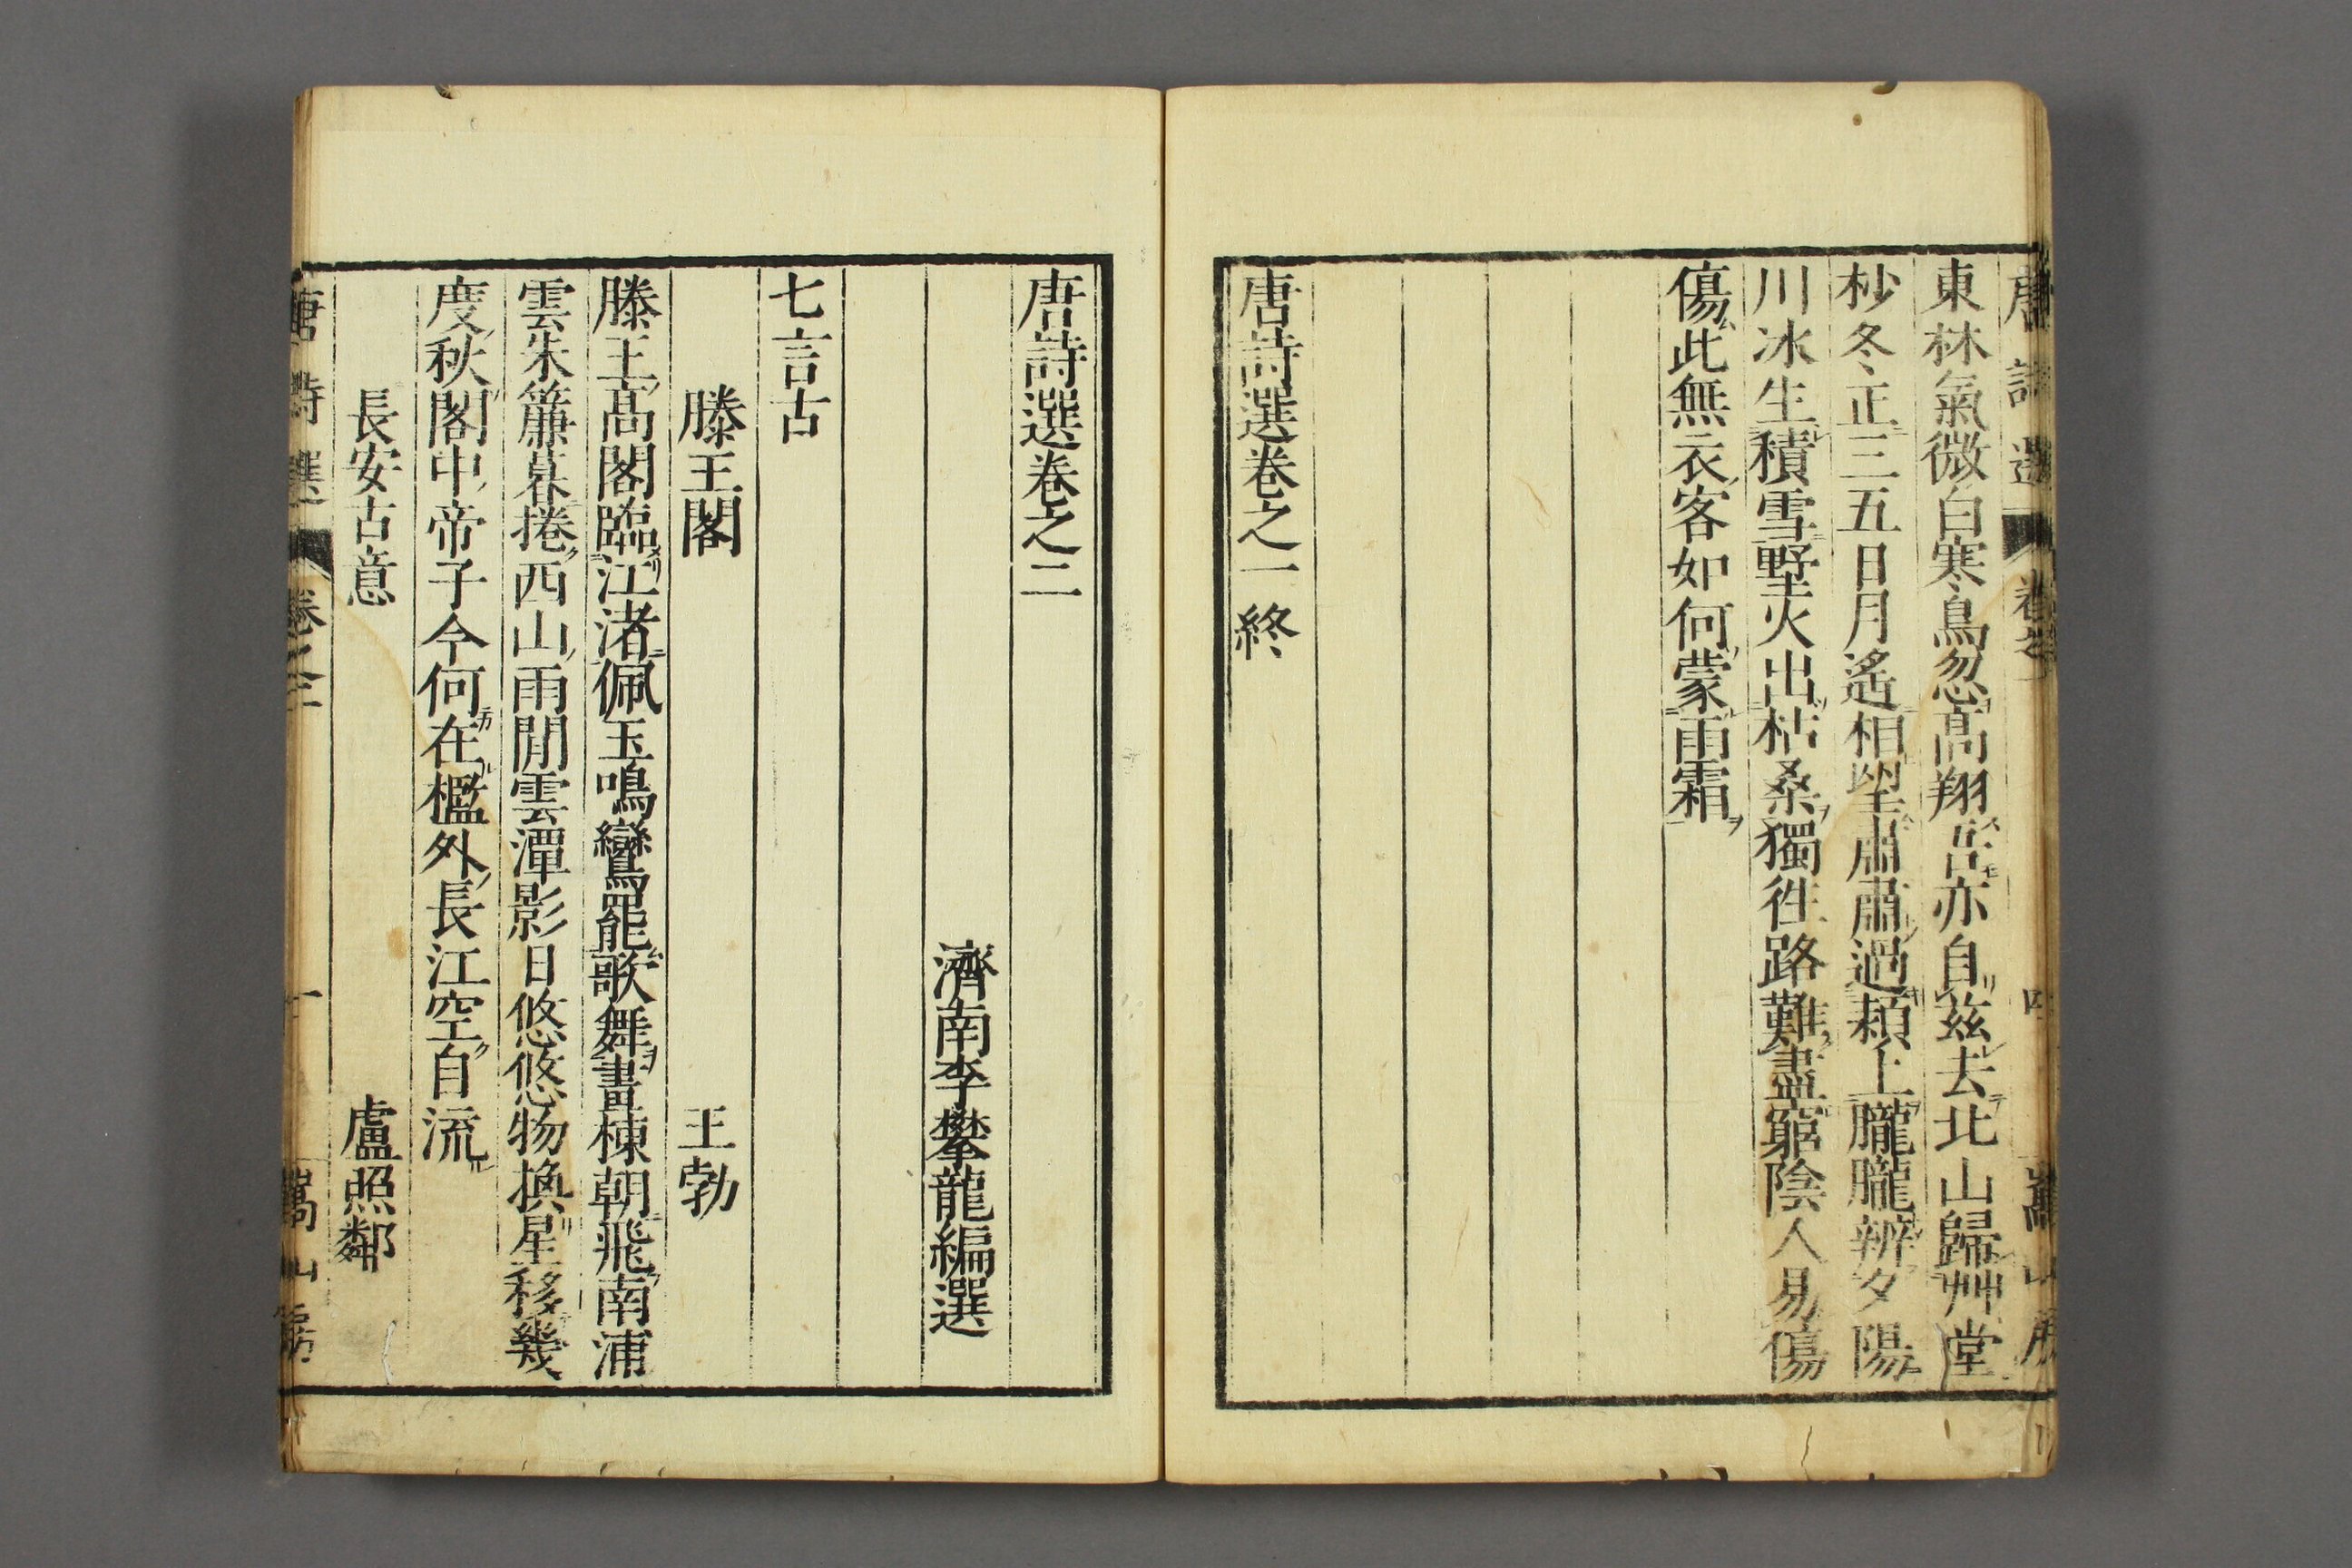 東林氣微白寒鳥忽高翔吾亦自兹去北山歸艸堂
杪冬正三五日月遙相望肅肅過潁上朧朧辨夕陽
川冰生積雪野火出枯桑獨徃路難盡窮陰人易傷
傷此無衣客如何蒙雨霜
唐詩選卷之一終
唐詩選卷之二
濟南李攀龍編選
七言古
滕王閣 王勃
滕王高閣臨江渚佩玉鳴鸞罷歌舞畫棟朝飛南浦
雲朱簾暮捲西山雨閒雲潭影日悠悠物換星移幾
度秋閣中帝子今何在檻外長江空自流
長安古意 盧照鄰
唐詩選 卷之二 一 嵩山房